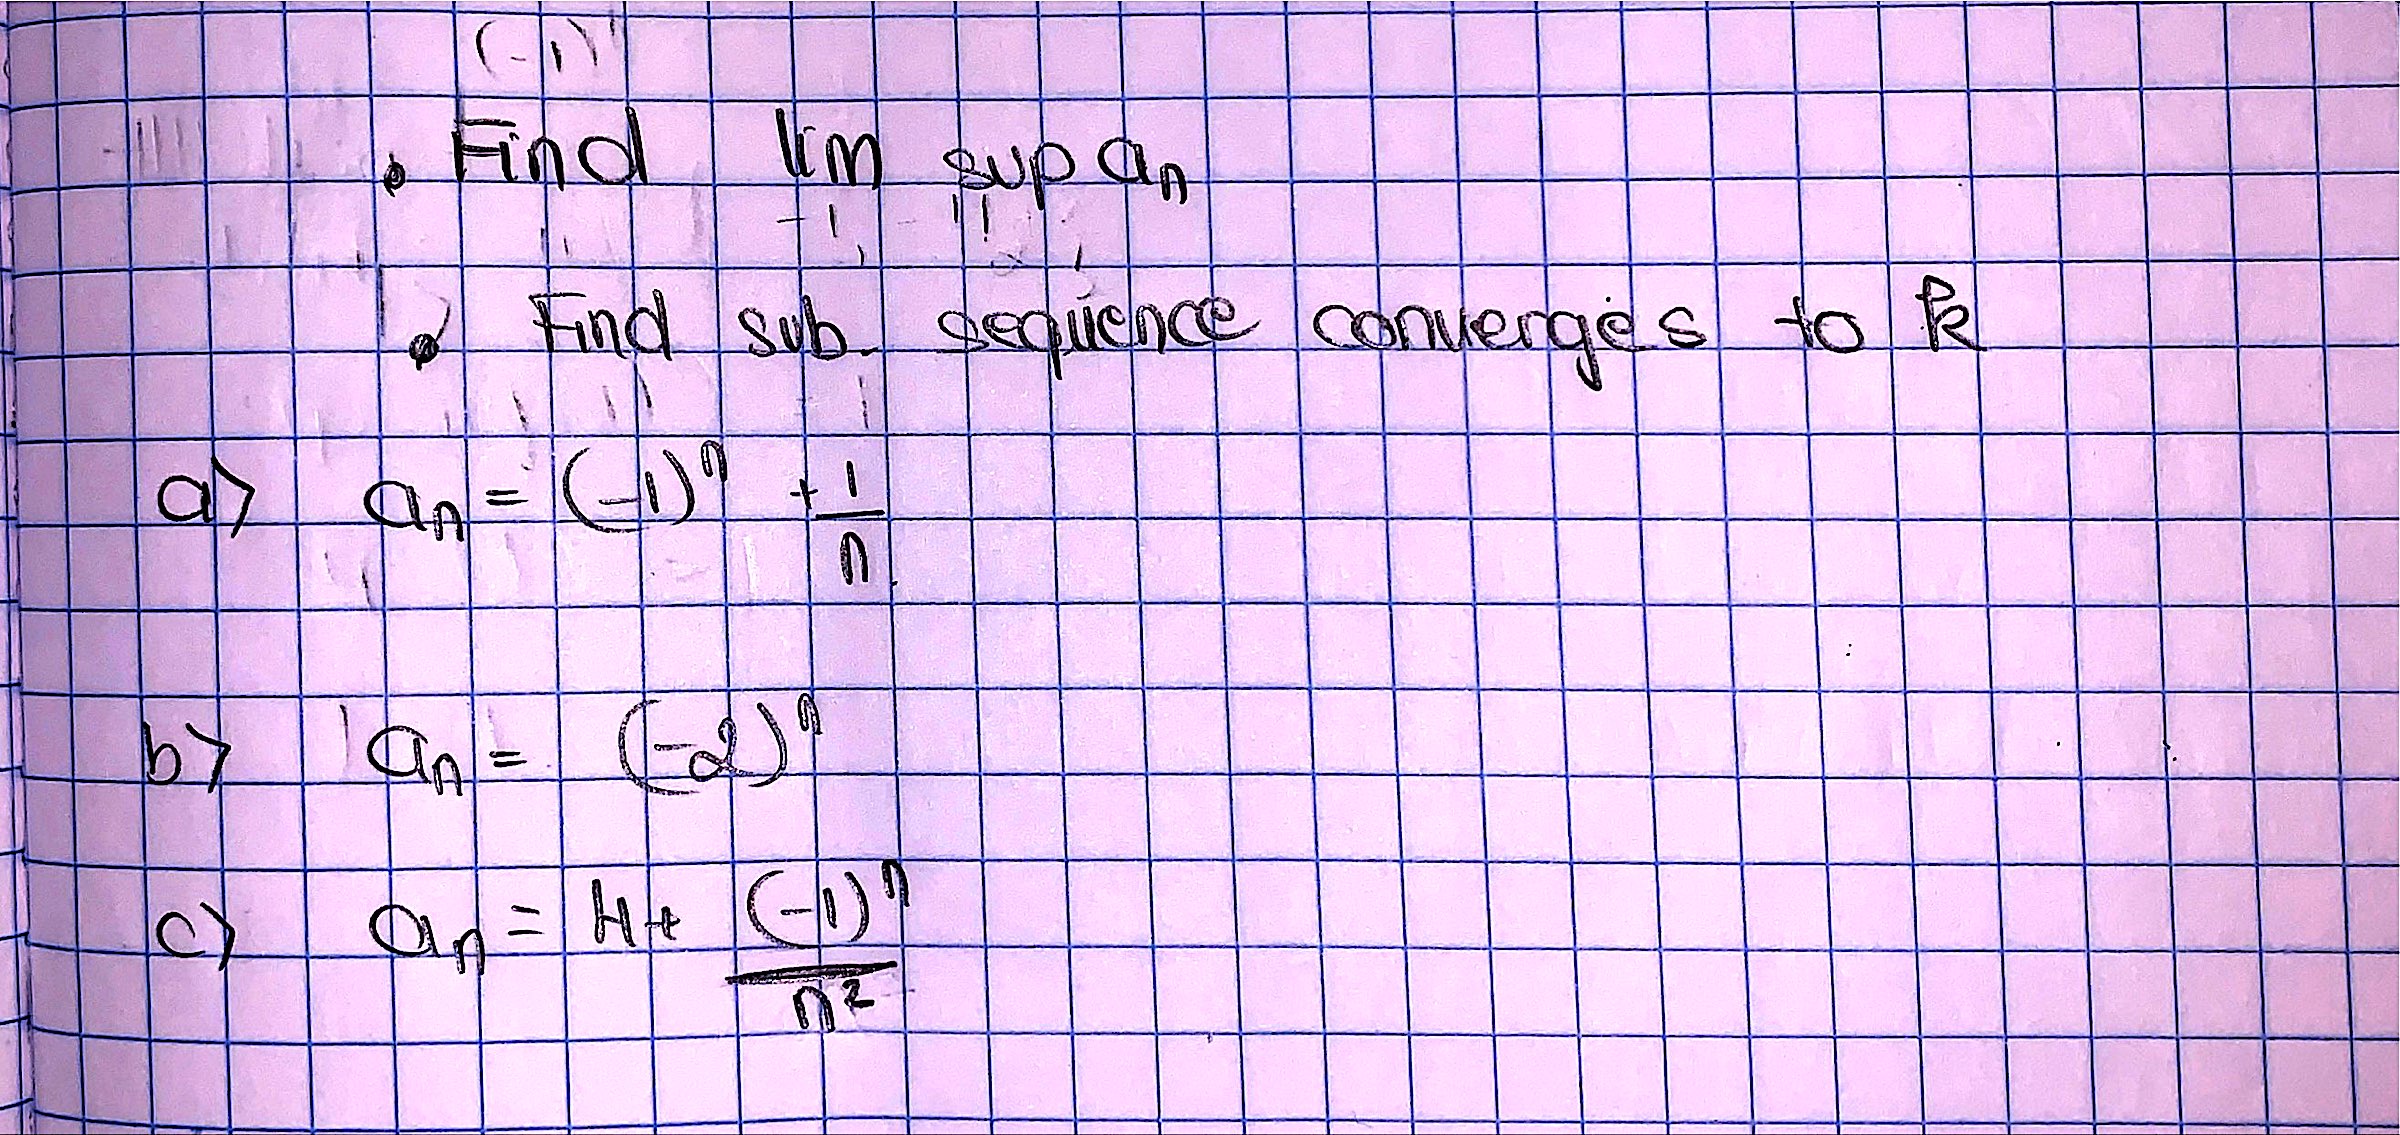 (-1)
. Find lim sup an
. Find sub sequence converges to k
a) an = (-1)^n + 1/n
b) an = (-2)^n
c) an = 4+ (-1)^n/n²